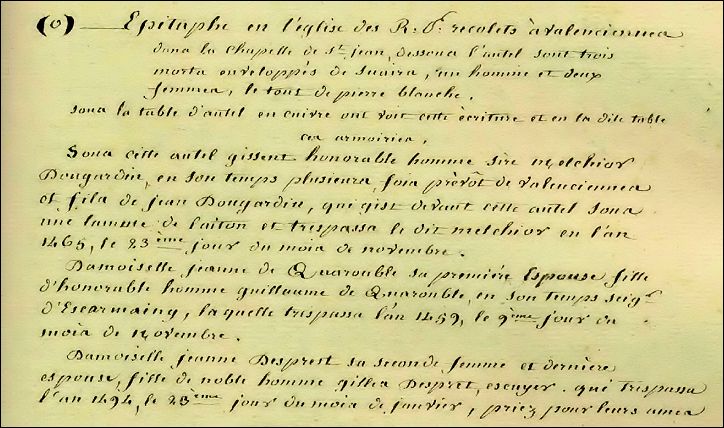 (o) Epitaphe en l'église des R: P: recolets à valenciennes
dans la Chapelle de St jean, dessous l'autel sont trois
morts enveloppés de suaires, un homme et deux
femmes, le tous de pierre blanche.
sous la table d'autel en cuivre ont voit cette écriture et en la dite table
ces armoiries,
Sous cette autel gissent honorable homme sire melchior
Dougardin, en son temps plusieurs fois prévôt de valenciennes
et fils de jean Dougardin, qui gist devant cette autel sous
une lamme de laiton et trespassa le dit melchior en l'an
1465, le 23 ème jour du mois de novembre.
Damoiselle jeanne de Quarouble sa première Espouse fille
d'honorable homme guillaume de Quarouble, en son temps seigr
d'Escarmaing, laquelle trespassa l'an 1459, le 9ème jour du
mois de Novembre.
Damoiselle jeanne Desprest sa seconde femme et dernière
espouse, fille de noble homme gilles Despret, escuyer. qui trespassa
l'an 1494, le 23ème jour du mois de janvier, priez pour leurs ames